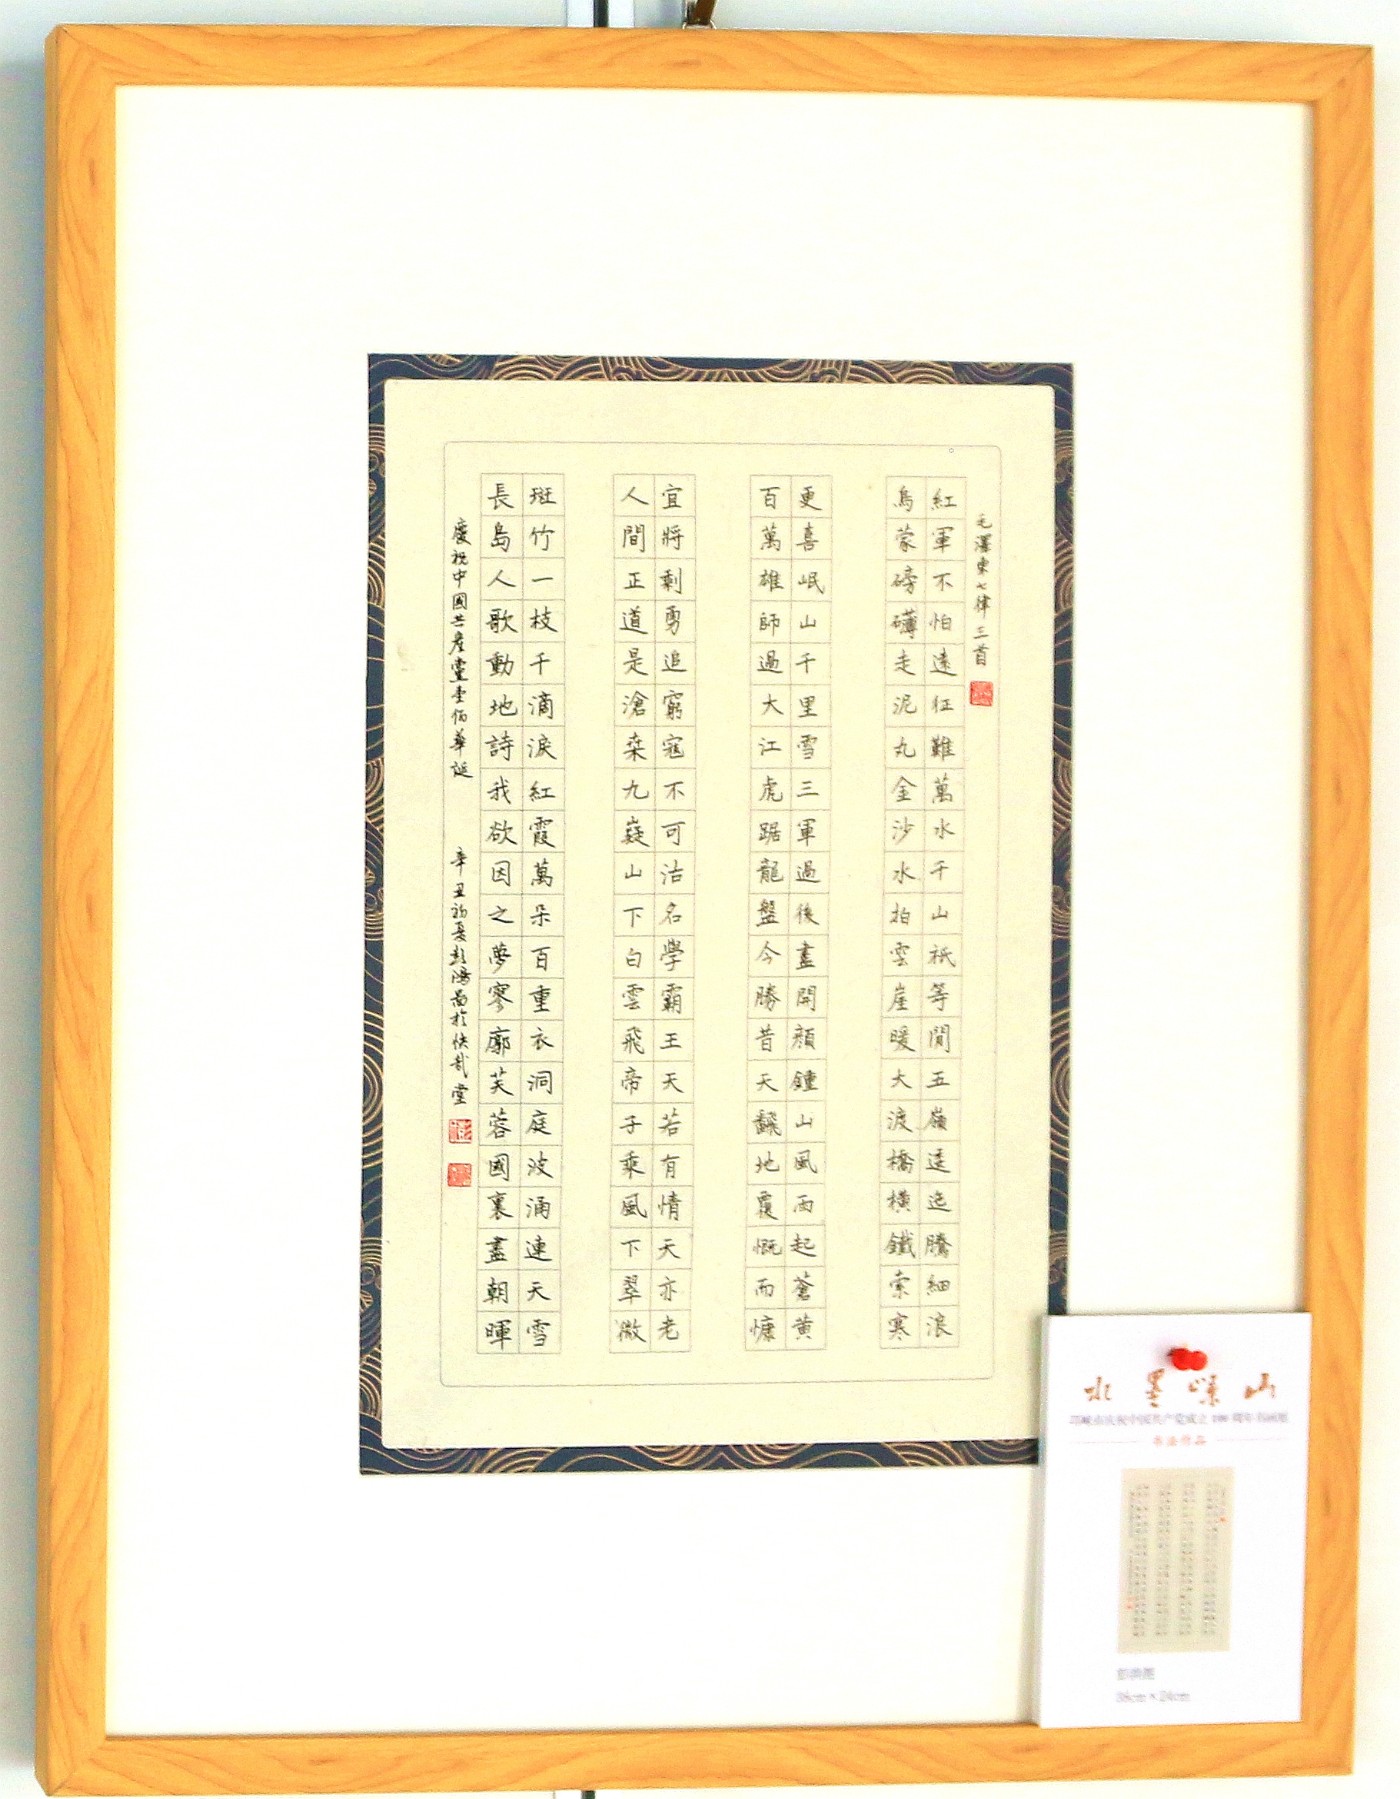 毛澤東七律三首
紅軍不怕遠征難萬水千山祇等閒五嶺逶迤騰細浪
烏蒙磅礴走泥丸金沙水拍雲崖暖大渡橋橫鐵索寒
更喜岷山千里雪三軍過後盡開顏鍾山風雨起蒼黃
百萬雄師過大江虎踞龍盤今勝昔天飜地覆慨而慷
宜將剩勇追窮寇不可沽名學霸王天若有情天亦老
人間正道是滄桒九嶷山下白雲飛帝子乘風下翠微
斑竹一枝千滴淚紅霞萬朵百重衣洞庭波涌連天雪
長島人歌動地詩我欲因之夢寥廓芙蓉國裏盡朝暉
慶祝中國共產黨壹佰華誕
辛丑初夏彭鴻於快哉堂
水墨崃山
邛崃市庆祝中国共产党成立100周年书画展
书法作品